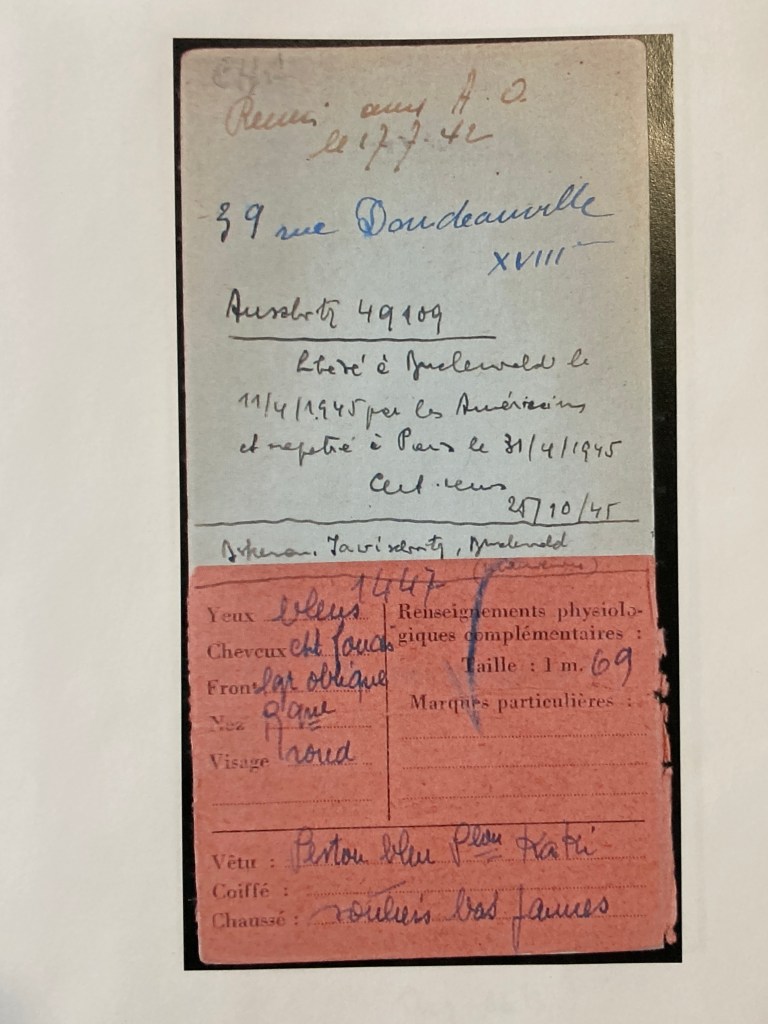 Remis aux A. O.
le 17.7.42
39 rue Doudeauville
XVIII
Auschwitz 49109
libéré à Buchenwald le
11/4/1945 par les Américains
et rapatrié à Paris le 31/4/1945
25/10/45
Birkenau, Jawischowitz, Buchenwald
1447
Yeux bleus
Cheveux cht foncé
Front lgr oblique
Nez
Visage rond
Renseignements physiolo-
giques complémentaires :
Taille : 1 m. 69
Marques particulières :
Vêtu : Veston bleu Plon Kaki
Coiffé :
Chaussé : souliers bas jaunes